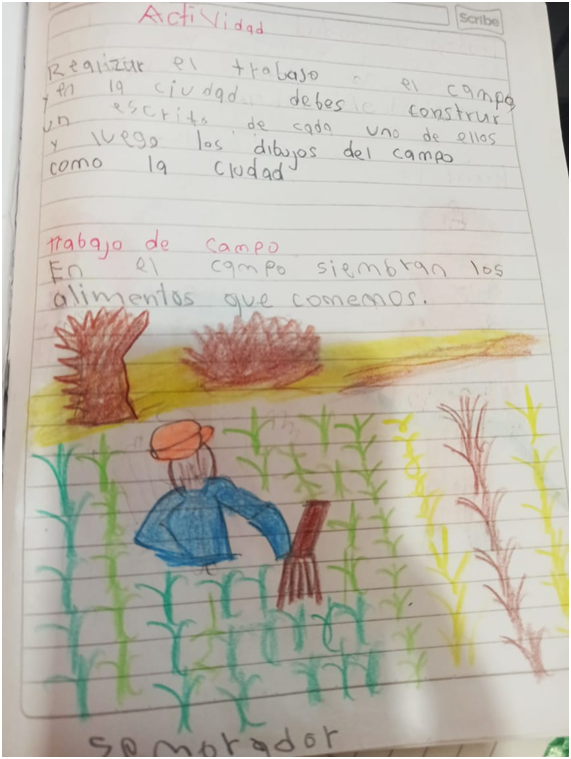 Scribe
Actividad
Realizar el trabajo el campo
y en la ciudad debes construr
un escrito de cada uno de ellos
y luego los dibujos del campo
como la ciudad
trabajo de campo
En el campo siembran los
alimentos que comemos.
sembrador